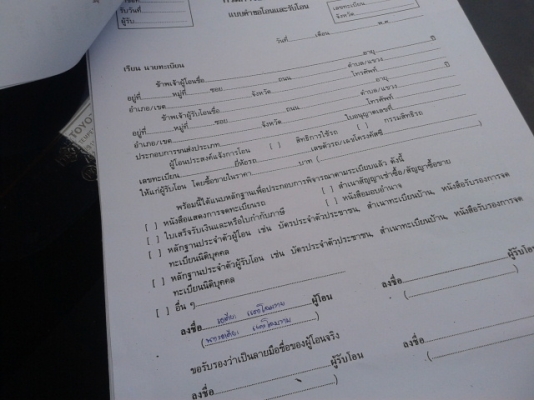 รับวันที่
ผู้รับ
แบบคำขอโอนและรับโอน
เลขทะเบียน
จังหวัด
วันที่ เดือน พ.ศ.
เรียน นายทะเบียน
ข้าพเจ้าผู้โอนชื่อ อายุ ปี
อยู่ที่ หมู่ที่ ซอย ถนน ตำบล/แขวง
อำเภอ/เขต จังหวัด โทรศัพท์
ข้าพเจ้าผู้รับโอนชื่อ อายุ ปี
อยู่ที่ หมู่ที่ ซอย ถนน ตำบล/แขวง
อำเภอ/เขต จังหวัด โทรศัพท์
ประกอบการขนส่งประเภท ใบอนุญาตเลขที่
ผู้โอนประสงค์แจ้งการโอน [ ] สิทธิการใช้รถ [ ] กรรมสิทธิ์รถ
เลขทะเบียน ยี่ห้อรถ เลขตัวรถ/เลขโครงคัสซี
ให้แก่ผู้รับโอน โดยซื้อขายในราคา บาท (
พร้อมนี้ได้แนบหลักฐานเพื่อประกอบการพิจารณาตามระเบียบแล้ว ดังนี้
[ ] หนังสือแสดงการจดทะเบียนรถ [ ] สำเนาสัญญาเช่าซื้อ/สัญญาซื้อขาย
[ ] ใบเสร็จรับเงินและหรือใบกำกับภาษี [ ] หนังสือมอบอำนาจ
[ ] หลักฐานประจำตัวผู้โอน เช่น บัตรประจำตัวประชาชน, สำเนาทะเบียนบ้าน, หนังสือรับรองการจด
ทะเบียนนิติบุคคล
[ ] หลักฐานประจำตัวผู้รับโอน เช่น บัตรประจำตัวประชาชน, สำเนาทะเบียนบ้าน, หนังสือรับรองการจด
ทะเบียนนิติบุคคล
[ ] อื่น ๆ
ลงชื่อ ผู้โอน ผู้รับโอน
( ) (
ขอรับรองว่าเป็นลายมือชื่อของผู้โอนจริง
ลงชื่อ ผู้รับโอน ลงชื่อ
( ) (